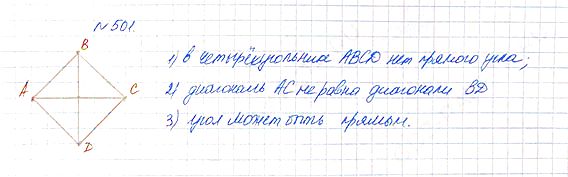 № 501.
B
A
C
D
1) в четырёхугольнике ABCD нет прямого угла;
2) диагональ AC не равна диагонали BD
3) угол может быть прямым.